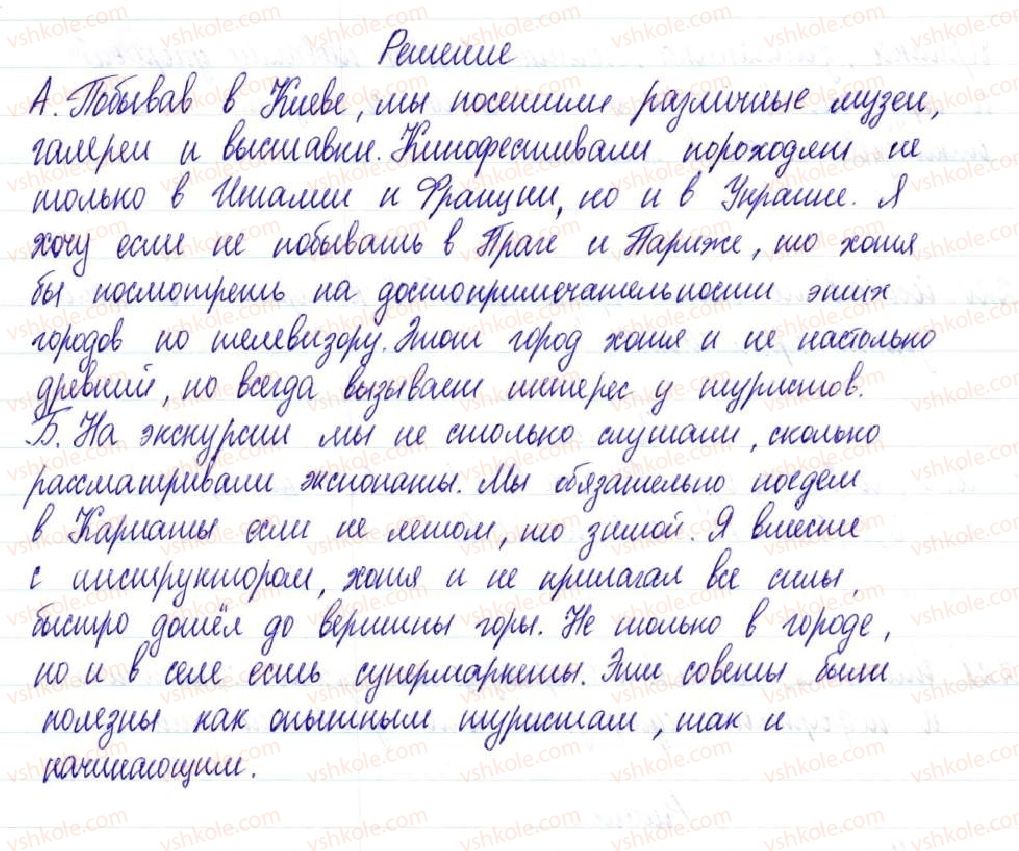 Решение
А. Побывав в Киеве, мы посетили различные музеи,
галереи и выставки. Кинофестивали пороходят не
только в Италии и Франции, но и в Украине. Я
хочу если не побывать в Праге и Париже, то хотя
бы посмотреть на достопримечательности этих
городов по телевизору. Этот город хотя и не настолько
древний, но всегда вызывает интерес у туристов.
Б. На экскурсии мы не столько слушали, сколько
рассматривали экспонаты. Мы обязательно поедем
в Карпаты если не летом, то зимой. Я вместе
с инструктором, хотя и не прилагал все силы,
быстро дошёл до вершины горы. Не только в городе,
но и в селе есть супермаркеты. Эти советы были
полезны как опытным туристам, так и
начинающим.